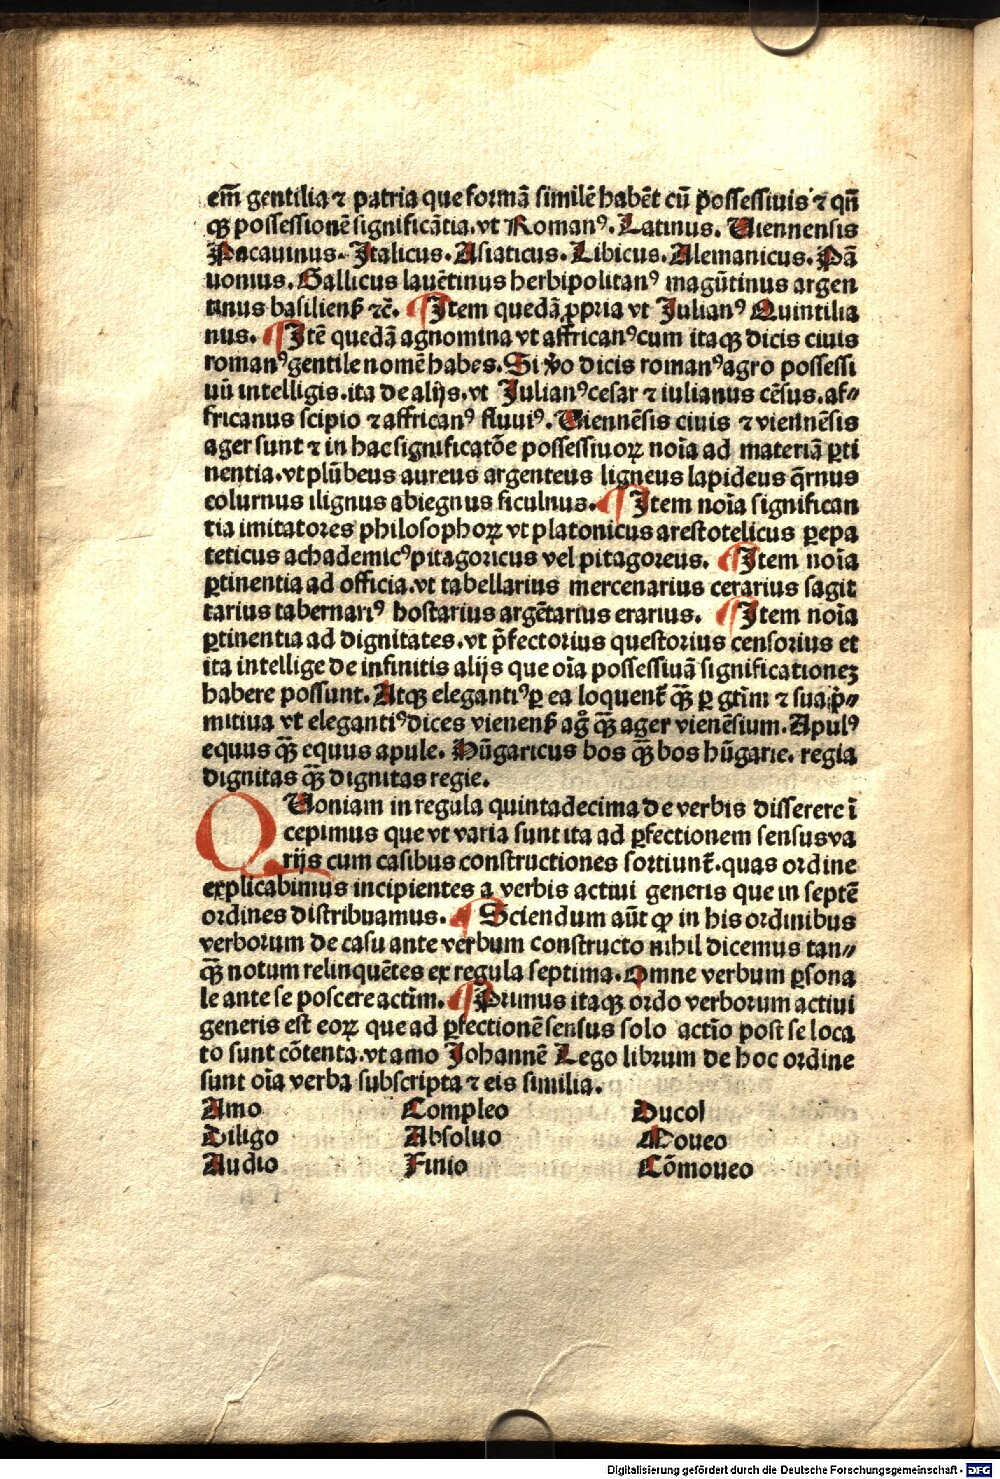 em̄ gentilia ⁊ patria que formā similē habēt cū possessiuis ⁊ qn̄
qꝫ possessionē significātia.vt Romanꝰ. Latinus. Uiennensis
Patauinus. Italicus. Asiaticus. Libicus. Alemanicus. Pā
uonius. Gallicus lauētinus herbipolitanꝰ magūtinus argen
tinus basilienß ⁊c̄. ¶ Item quedā ꝓpria vt Julianꝰ Quintilia
nus. ¶ Itē quedā agnomina vt affricanꝰ cum itaqꝫ dicis ciuis
romanꝰ gentile nomē habes. Si v̊o dicis romanꝰ agro possessi
uū intelligis.ita de alijs.vt Julianꝰ cesar ⁊ iulianus cēsus.af⸗
fricanus scipio ⁊ affricanꝰ fluuiꝰ. Uiennēsis ciuis ⁊ viennēsis
ager sunt ⁊ in hac significatōe possessiuoꝝ noīa ad materiā ꝑti
nentia.vt plūbeus aureus argenteus ligneus lapideus q̄rnus
colurnus ilignus abiegnus ficulnus. ¶ Item noīa significan
tia imitatores philosophoꝝ vt platonicus arestotelicus ꝑepa
teticus achademicꝰ pitagoricus vel pitagoreus. ¶ Item noīa
ꝑtinentia ad officia.vt tabellarius mercenarius cerarius sagit
tarius tabernariꝰ hostarius argētarius erarius. ¶ Item noīa
ꝑtinentia ad dignitates.vt p̄fectorius questorius censorius et
ita intellige de infinitis alijs que oīa possessiuā significationeꝫ
habere possunt. Atqꝫ elegantiꝰ ꝑ ea loquent̄ qꝫ̄ ꝑ gtīm ⁊ sua p̄⸗
mitiua vt elegantiꝰ dices vienenß agꝰ qꝫ̄ ager vienēsium. Apulꝰ
equus qꝫ̄ equus apule. Hūgaricus bos qꝫ̄ bos hūgarie. regia
dignitas qꝫ̄ dignitas regie.
QUoniam in regula quintadecima de verbis disserere ī
cepimus que vt varia sunt ita ad ꝑfectionem sensus va
rijs cum casibus constructiones sortiunt̄.quas ordine
explicabimus incipientes a verbis actiui generis que in septē
ordines distribuamus. ¶ Sciendum aūt ꝙ in his ordinibus
verborum de casu ante verbum constructo nihil dicemus tan⸗
qꝫ̄ notum relinquētes ex regula septima. Omne verbum ꝑsona
le ante se poscere actīm. ¶ Primus itaqꝫ ordo verborum actiui
generis est eoꝝ que ad ꝑfectionē sensus solo actīo post se loca
to sunt cōtenta.vt amo Johannē Lego librum de hoc ordine
sunt oīa verba subscripta ⁊ eis similia.
Amo Compleo Ducol
Diligo Absoluo Moueo
Audio Finio Cōmoueo
Digitalisierung gefördert durch die Deutsche Forschungsgemeinschaft - DFG